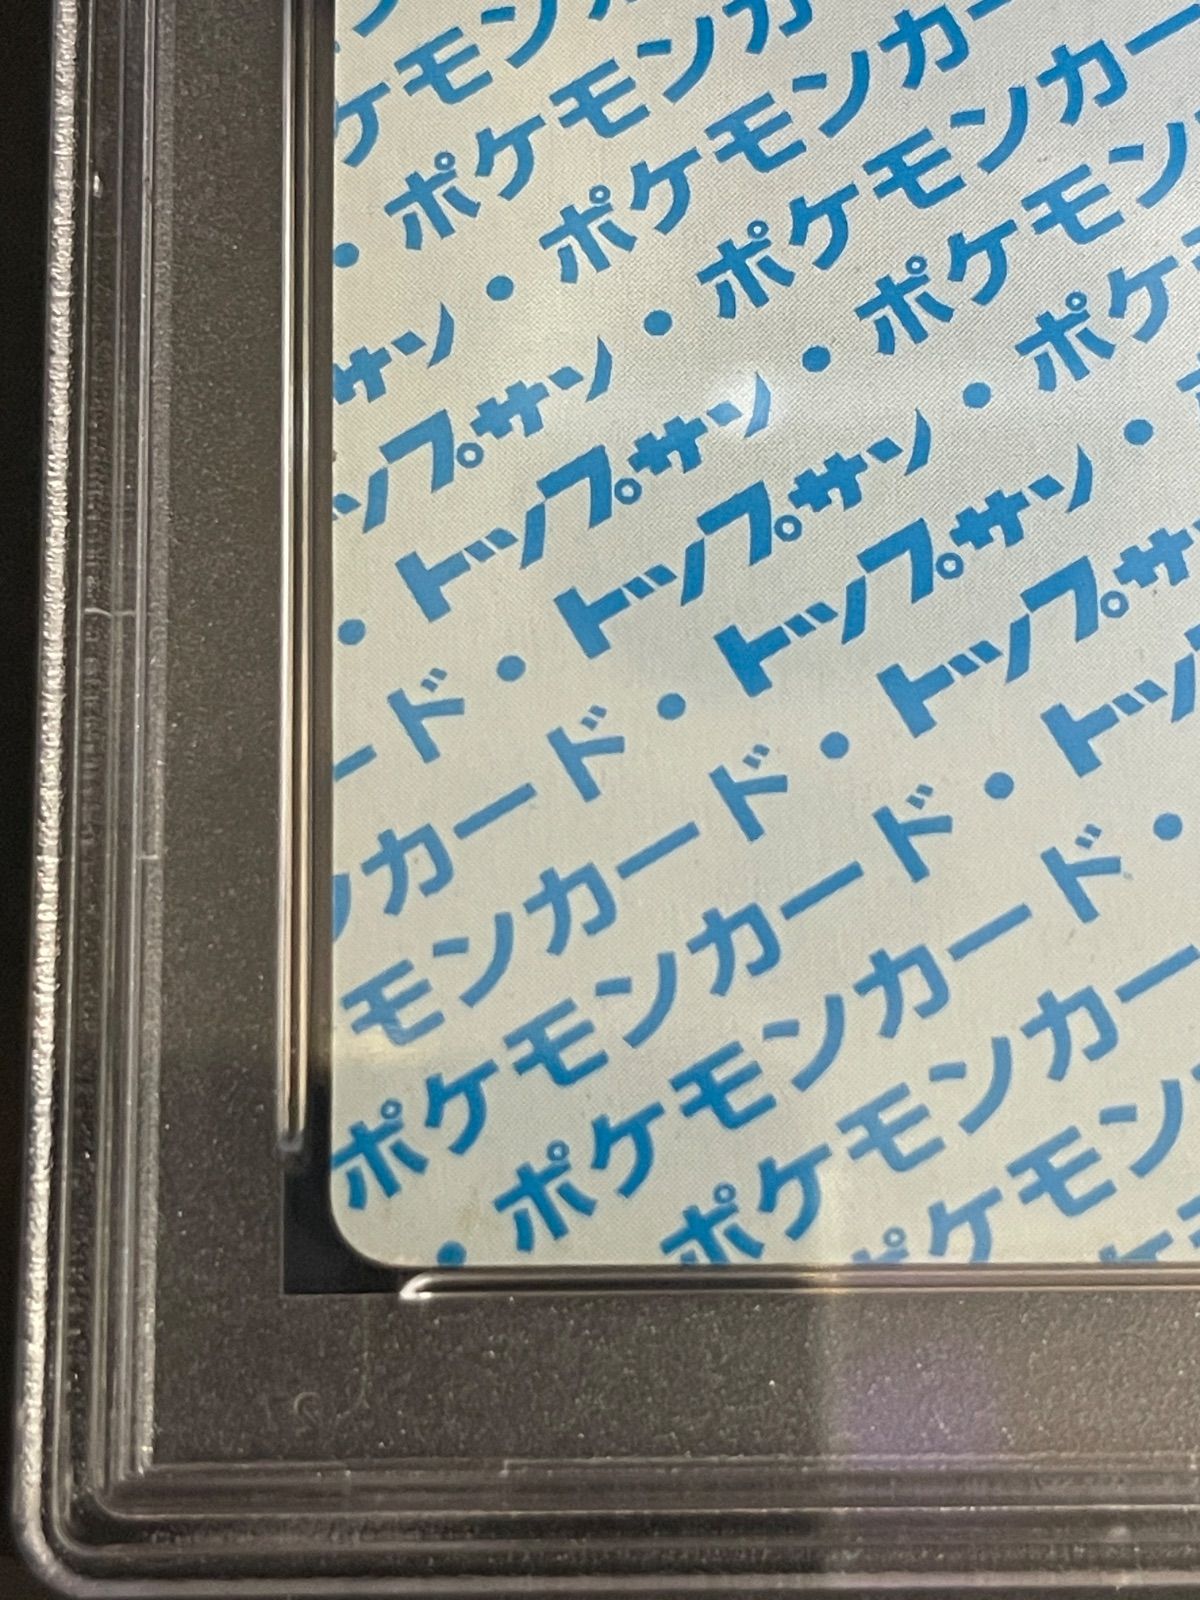 ケモン
・ポケモンカ
サン・ポケモンカー
ップサン・ポケモンカー
・トップサン・ポケモン
ード・トップサン・ポケ
ンカード・トップサン・
モンカード・トップサ
ポケモンカード・トッ
・ポケモンカード・
ポケモンカー
ポケモン